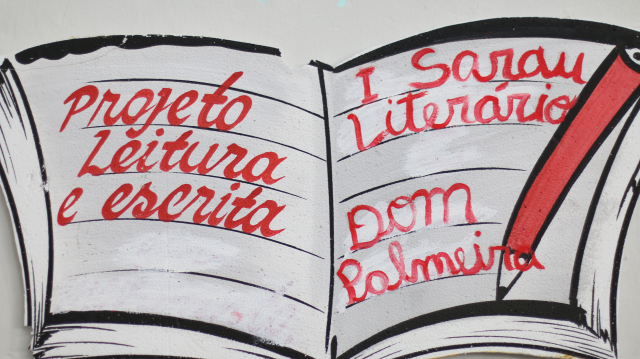 Projeto
Leitura
e escrita
I Sarau
Literário
Dom
Palmeira